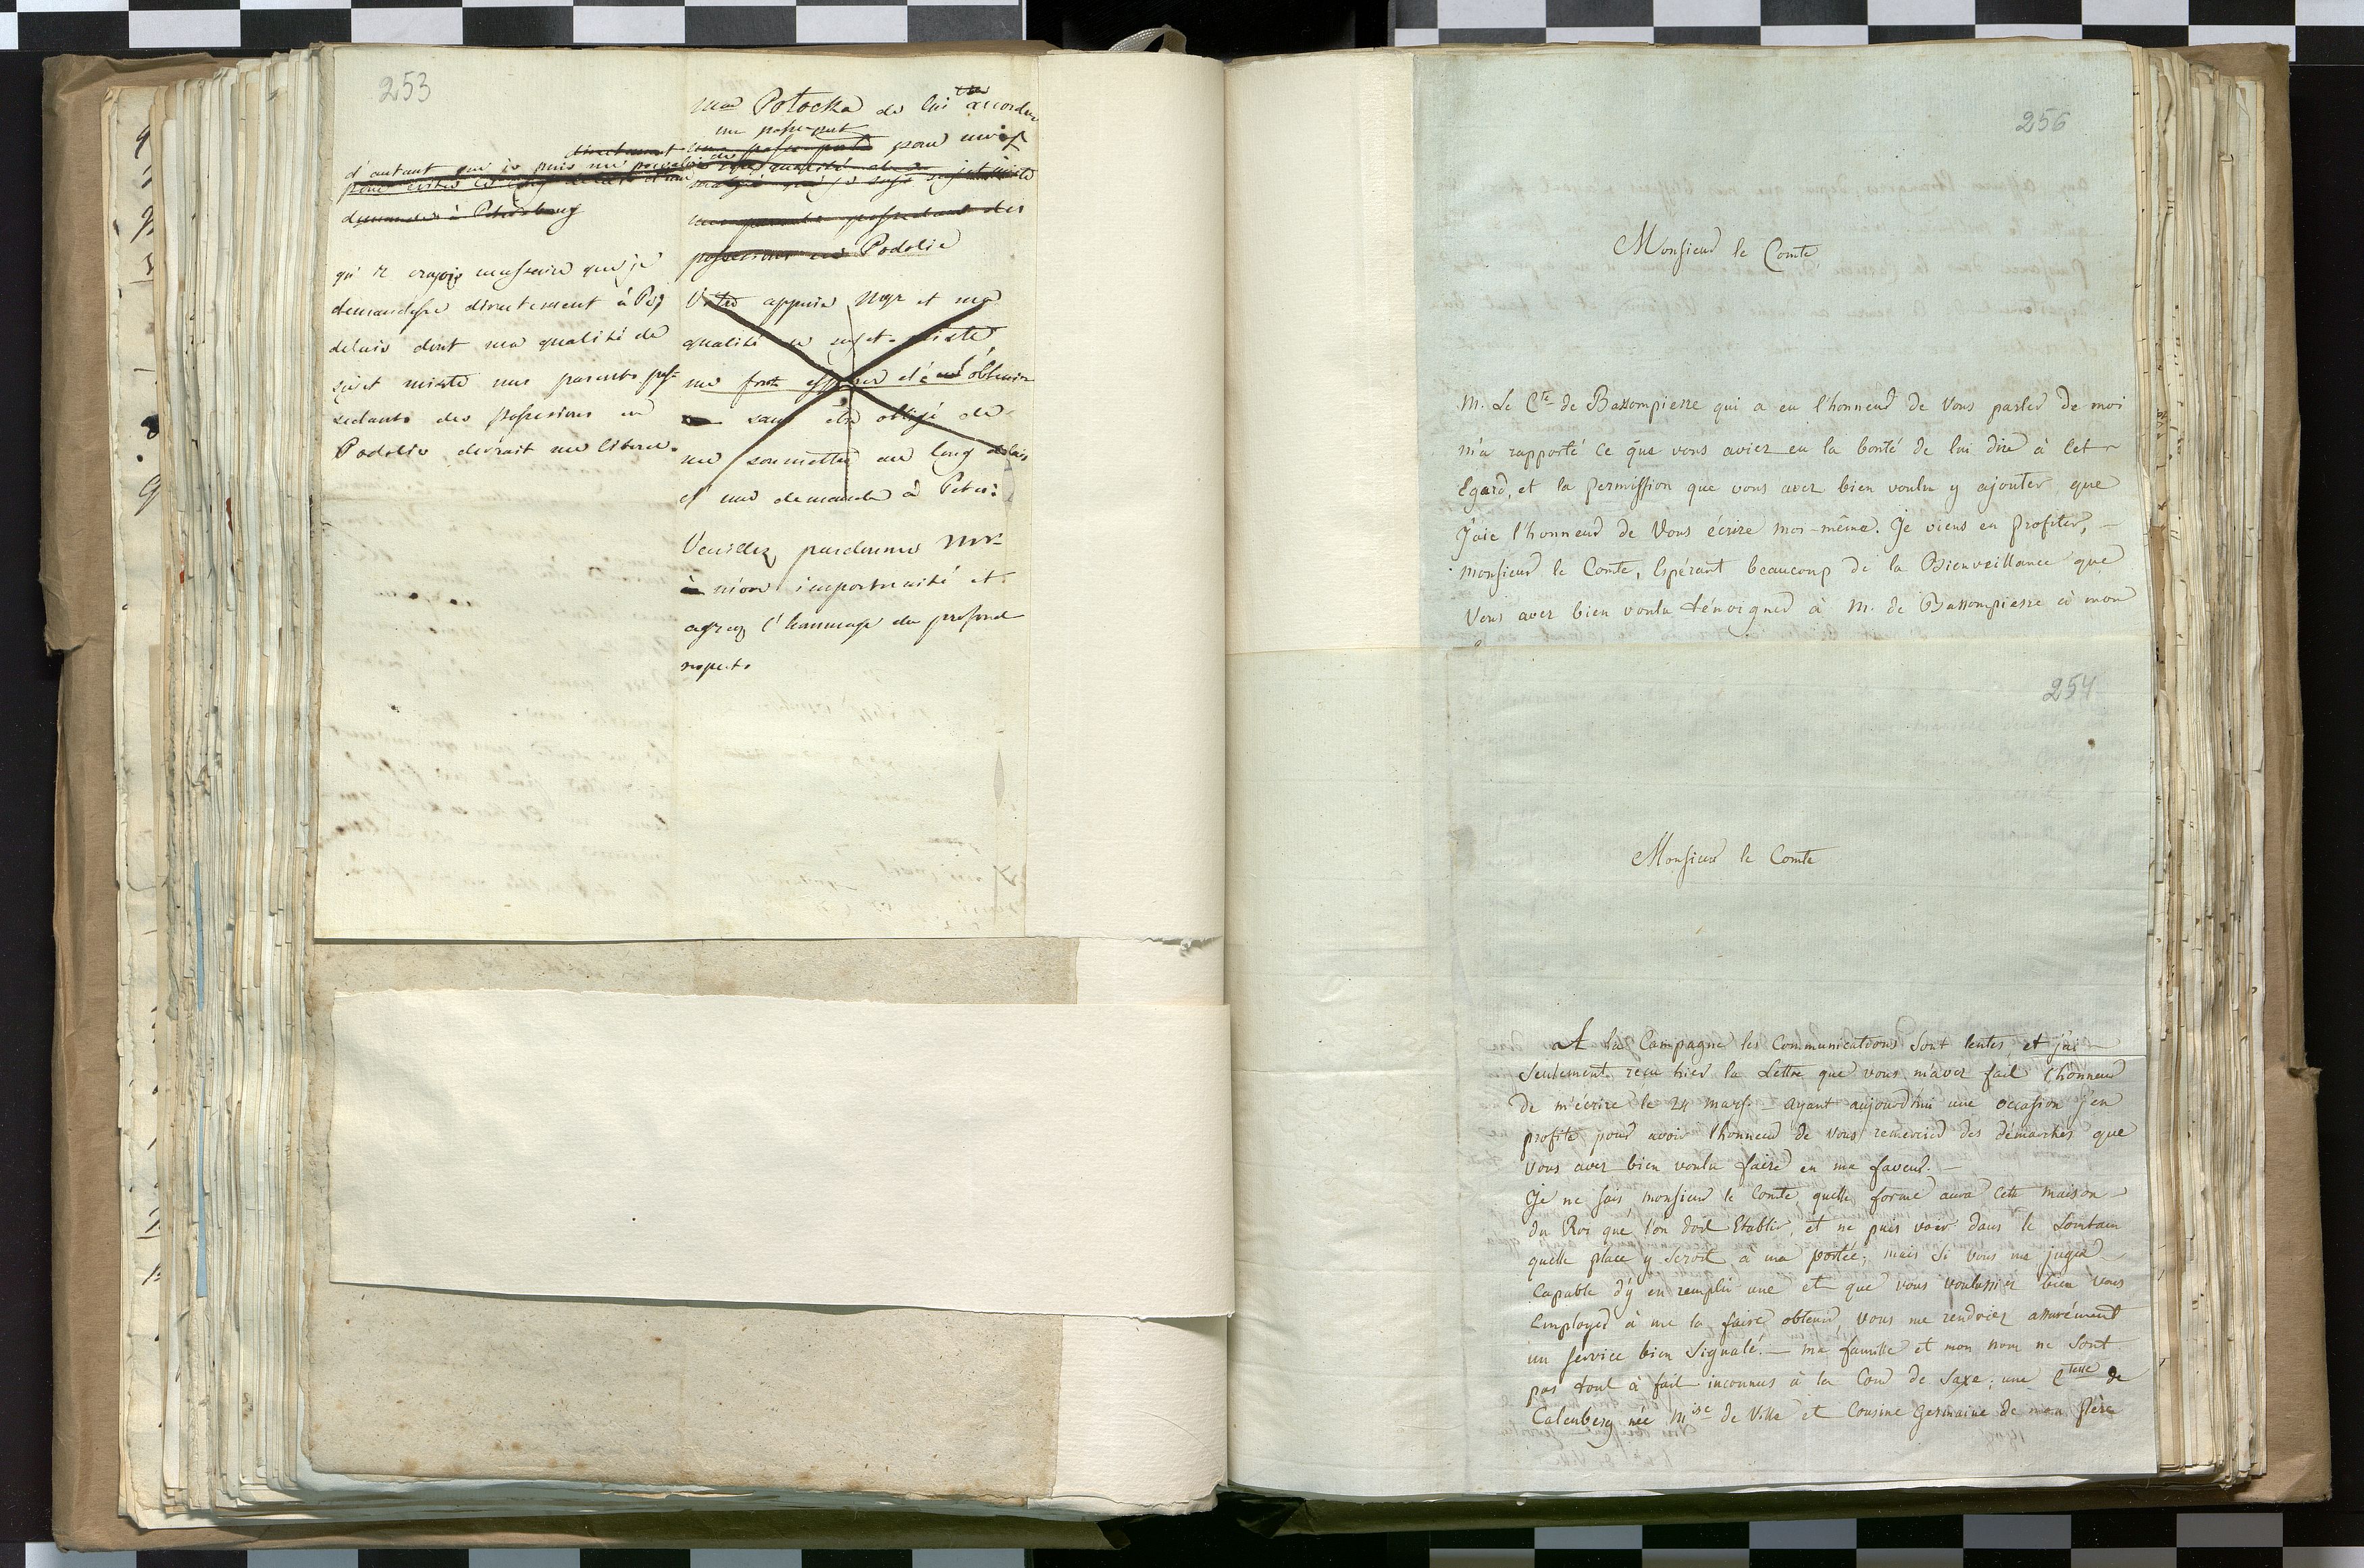 253
d'autant que je puis me
demander à Petersbourg
qu'il croyois necessaire que je
demandasse directement à Pe;
delais dont ma qualité de
sujet mixte mes parents pos-
sedants des possessions en
Podolie devrait me liberer.
ma Potocka de lui accorder
un passe-port
pour moi
malgré que je suis sujet mixte
mes parents possedant des
possessions en Podolie
Votre appuie Mgr et ma
qualité de sujet mixte
me font esperer d'obtenir
sans être obligé de
me soumettre au long delais
d'une demande à Peters:
Veuillez pardonner Mr
à mon importunité et
agréez l'hommage du profond
respect.
256
Monsieur le Comte,
M. Le Cte de Bassompierre qui a eu l'honneur de Vous parler de moi
m'a rapporté ce que vous aviez eu la bonté de lui dire à cet
Egard, et la permission que vous avez bien voulu y ajouter, que
J'aie l'honneur de Vous écrire moi-même. Je viens en profiter, -
Monsieur le Comte, Espérant beaucoup de la Bienveillance que
Vous avez bien voulu témoigner à M. de Bassompierre à mon
254
Monsieur le Comte
A la Campagne les Communications Sont lentes, et j'ai -
Seulement reçu hier la Lettre que vous m'avez fait l'honneur
de m'écrire le 24 mars. - ayant aujourd'hui une occasion j'en
profite pour avoir l'honneur de Vous remercier des démarches que
Vous avez bien voulu faire en ma faveur. -
Je ne sais, monsieur le Comte, quelle forme aura cette maison
du Roi que l'on doit Etablir, et ne puis voir dans le Lointain
quelle place y seroit à ma portée; mais Si vous me jugez
Capable d'y en remplir une et que vous voulussiez bien vous
Employer à me la faire obtenir, Vous me rendriez assurément
un service bien Signalé. - ma famille et mon nom ne Sont
pas tout à fait inconnus à la Cour de Saxe; une Ctesse de
Calenberg née Mise de Ville et Cousine Germaine de mon Père